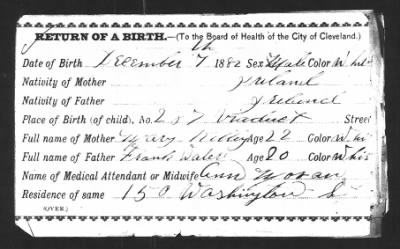 RETURN OF A BIRTH.—(To the Board of Health of the City of Cleveland.)
Date of Birth December 7th 1882 Sex Male Color White
Nativity of Mother Ireland
Nativity of Father Ireland
Place of Birth (of child), No. 287 Viaduct Street
Full name of Mother Mary Age 22 Color Whi
Full name of Father Frank Age 20 Color Whi
Name of Medical Attendant or Midwife Ann Moran
Residence of same 150 Washington St
(OVER.)